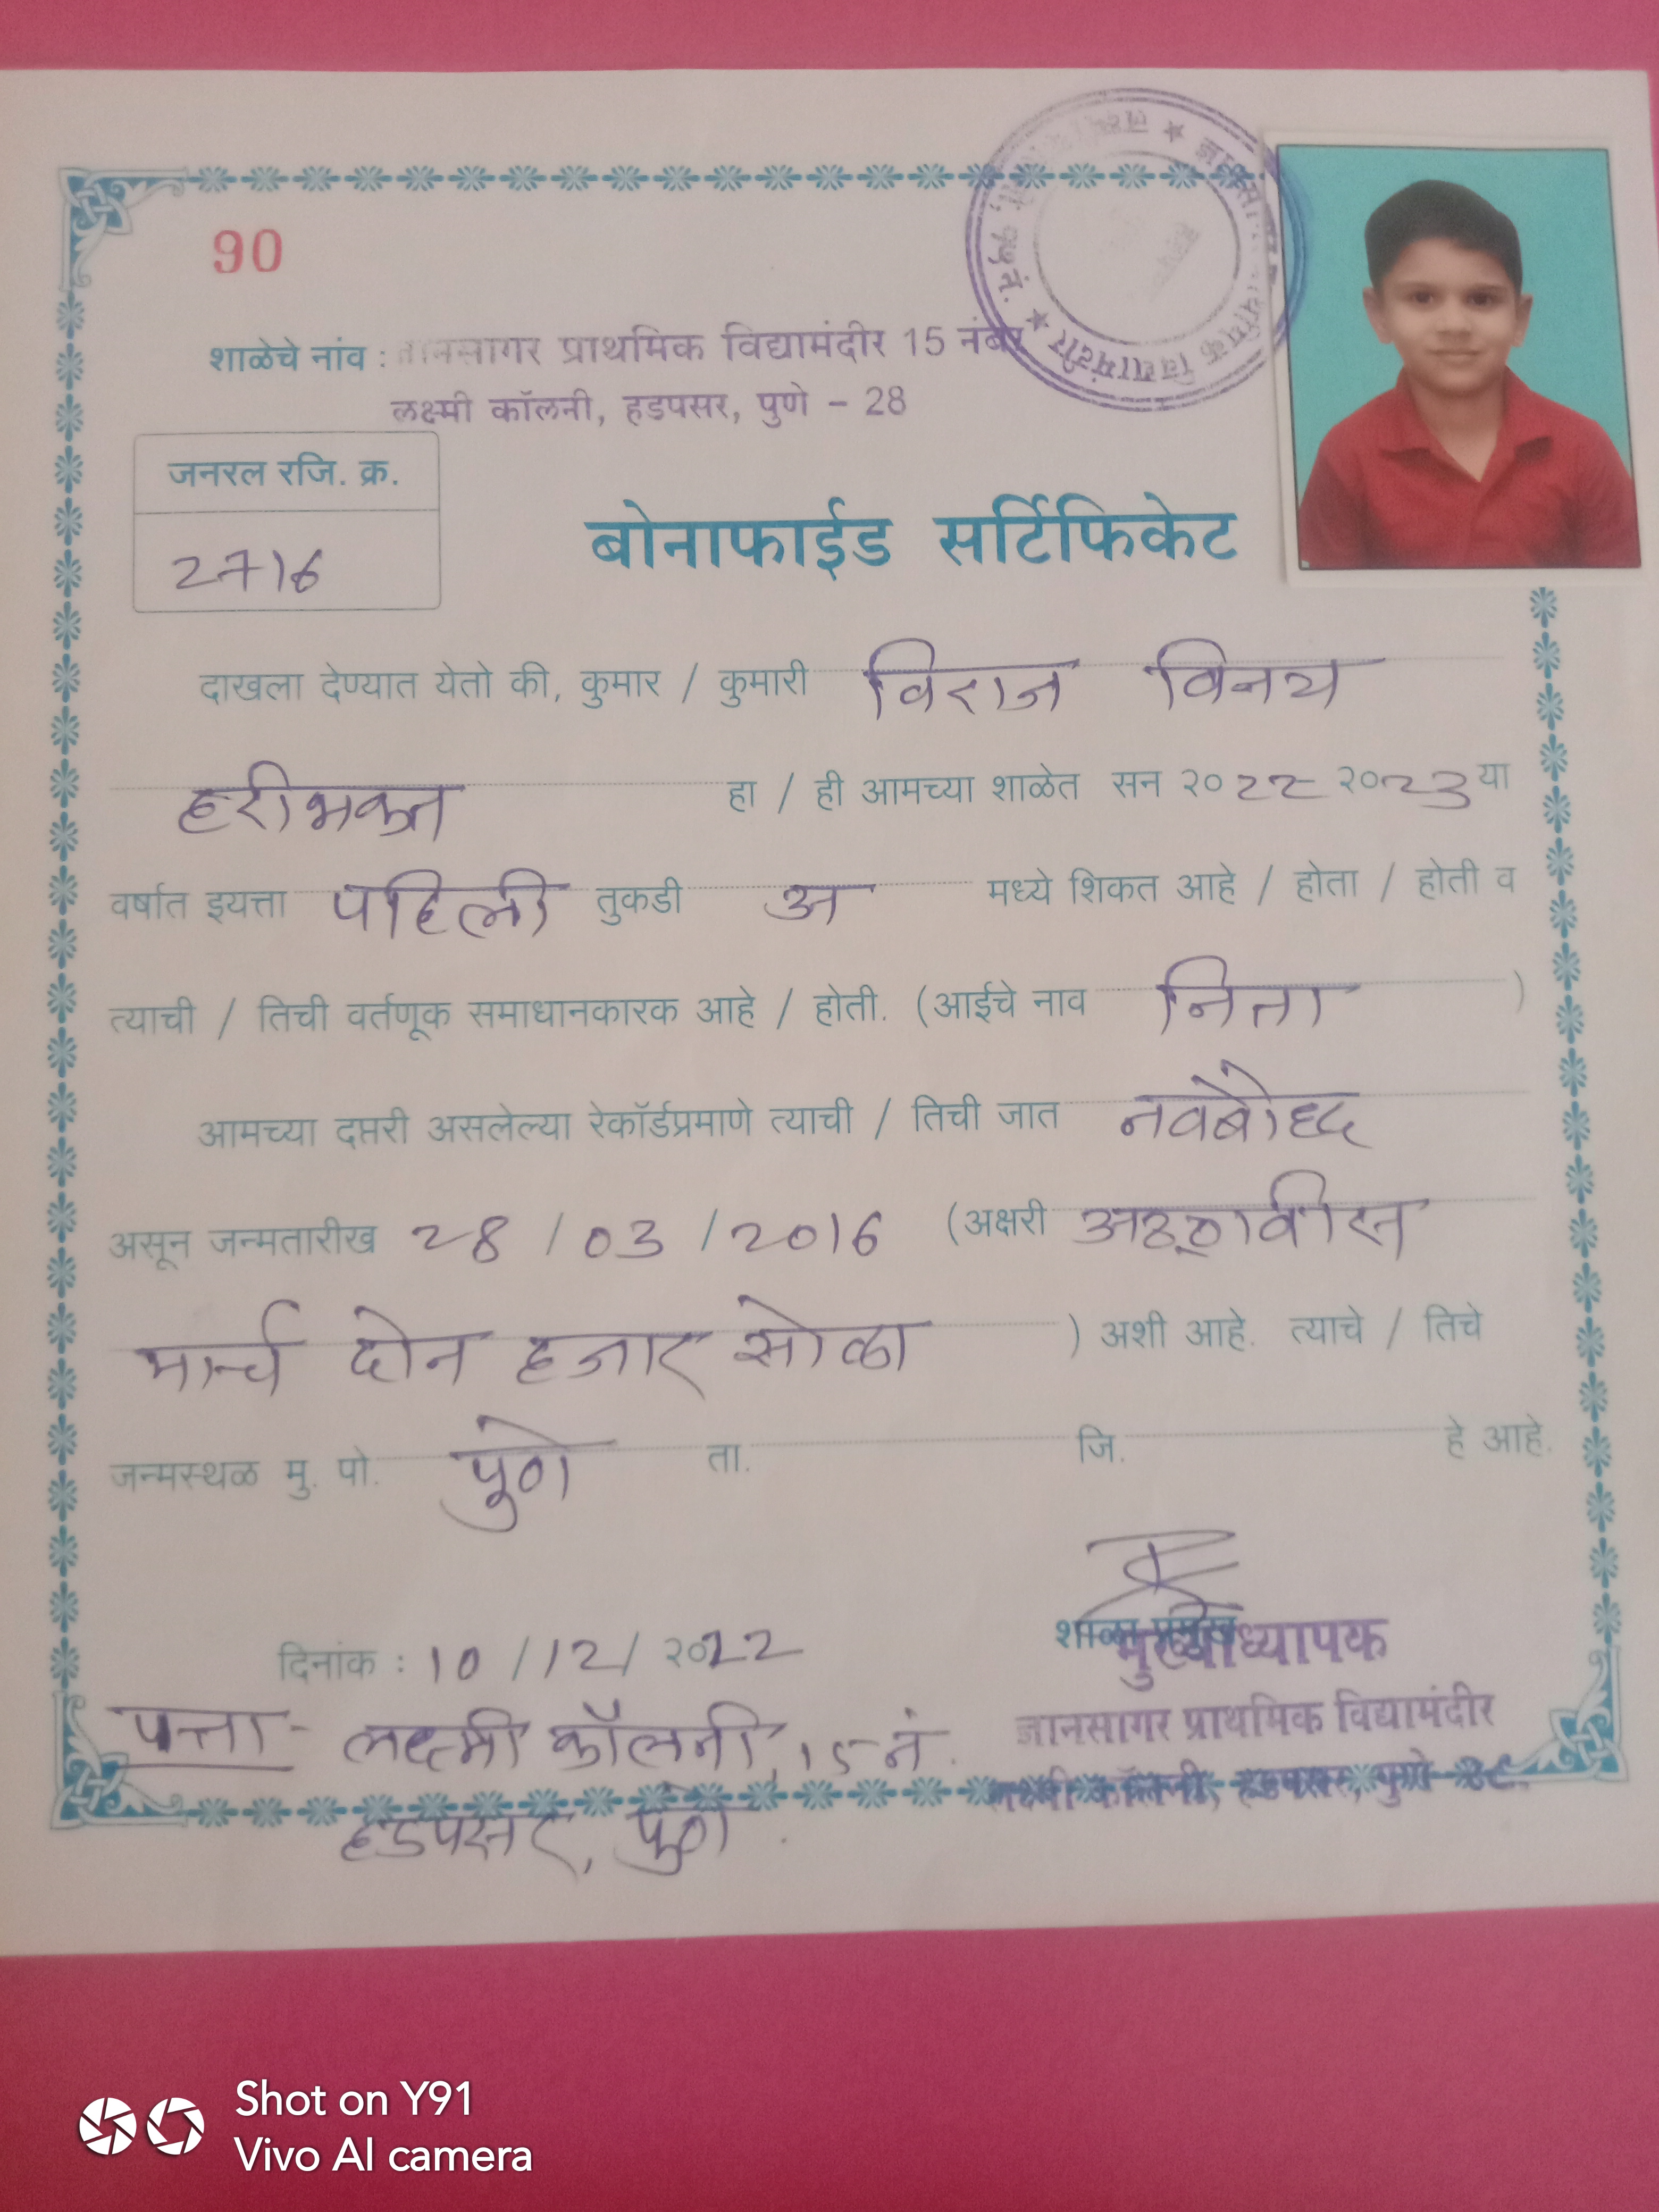 90
शाळेचे नांव : ज्ञानसागर प्राथमिक विद्यामंदीर 15 नंबर
लक्ष्मी कॉलनी, हडपसर, पुणे - 28
जनरल रजि. क्र.
2716
बोनाफाईड सर्टिफिकेट
दाखला देण्यात येतो की, कुमार / कुमारी विराज विनय
हरीभक्त हा / ही आमच्या शाळेत सन २०22 २०23 या
वर्षात इयत्ता पहिली तुकडी अ मध्ये शिकत आहे / होता / होती व
त्याची / तिची वर्तणूक समाधानकारक आहे / होती. (आईचे नाव निता )
आमच्या दप्तरी असलेल्या रेकॉर्डप्रमाणे त्याची / तिची जात नवबौद्ध
असून जन्मतारीख 28 / 03 / 2016 (अक्षरी अठ्ठावीस
मार्च दोन हजार सोळा ) अशी आहे. त्याचे / तिचे
जन्मस्थळ मु. पो. पुणे ता. जि. हे आहे.
दिनांक : 10 / 12 / २०22
शाळा प्रमुख
मुख्याध्यापक
ज्ञानसागर प्राथमिक विद्यामंदीर
लक्ष्मी कॉलनी, हडपसर, पुणे - २८.
पत्ता - लक्ष्मी कॉलनी, 15 नं.
हडपसर, पुणे.
Shot on Y91
Vivo AI camera